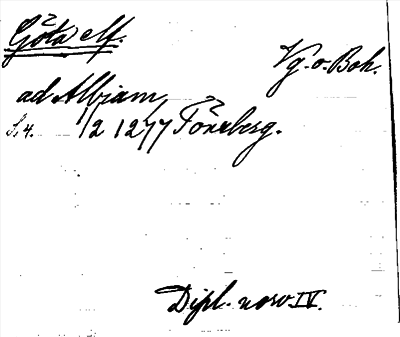 Göta elf.
Vg. o. Boh.
ad Albiam,
S. 4. 1/2 1277 Tönsberg.
Dipl. norv. IV.